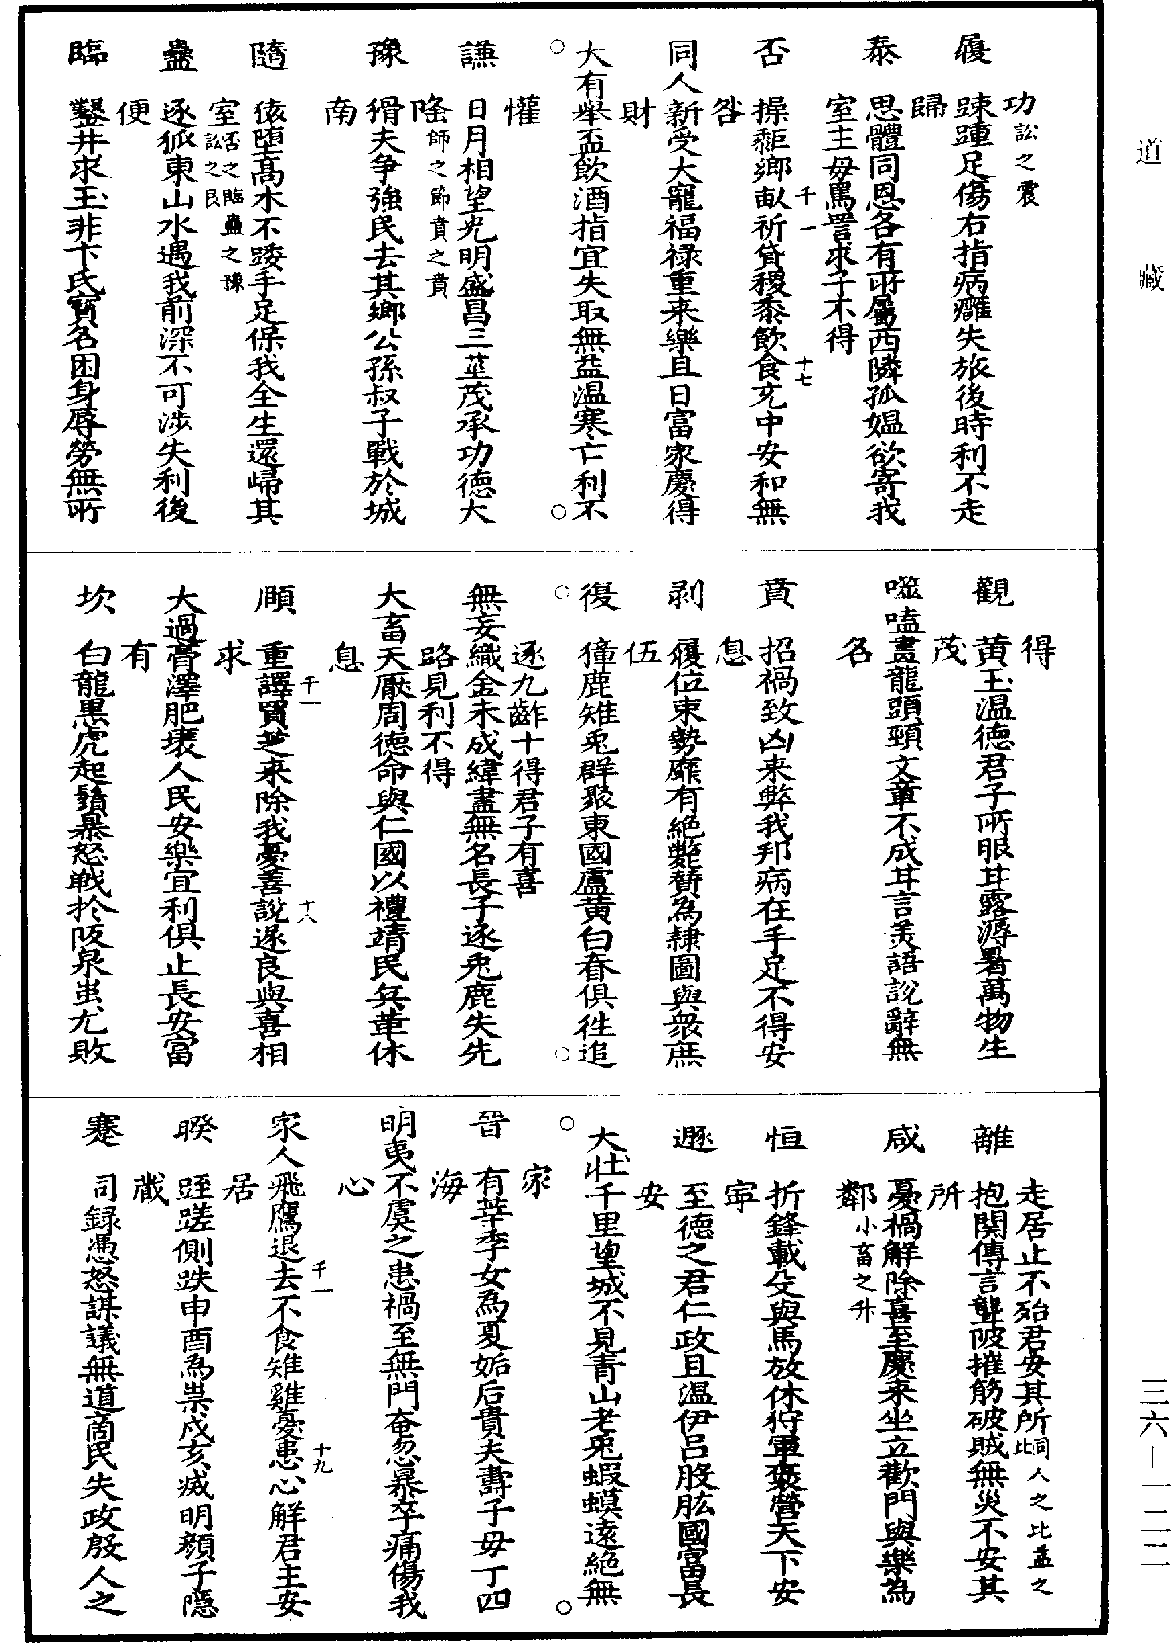 道藏
功訟之震
履踈踵足傷右指病癰失旅後時利不走
歸
泰思體同恩各有所屬西隣孤媪欲寄我
室主毋罵詈求子不得
否操耜鄉畝祈貸稷黍飲食充中安和無
咎
千一
十七
同人新受大寵福禄重来樂且日富家慶得
財
大有舉盃飲酒指宜失取無益温寒亡利不
懽
謙日月相望光明盛昌三莖茂承功德大
隆師之節賁之賁
豫猾夫争強民去其鄉公孫叔子戰於城
南
隨依墮髙木不踒手足保我全生還歸其
室否之臨蠱之豫訟之艮
蠱逐狐東山水遇我前深不可渉失利後
便
臨鑿井求玉非卞氏寳名困身辱勞無所
得
觀黄玉温德君子所服甘露溽暑萬物生
茂
噬嗑畫龍頭頸文章不成甘言美語説辭無
名
賁招禍致凶来弊我邦病在手足不得安
息
剥履位東勢靡有絶斃賛為隷圖與衆庶
伍
復獐鹿雉兎群聚東國盧黄白脊俱徃追
逐九齚十得君子有喜
無妄織金未成緯盡無名長子逐兎鹿失先
路見利不得
大畜天厭周德命與仁國以禮靖民兵革休
息
頤重譯賈芝来除我憂善説遂良與喜相
求
千一
十八
大過膏澤肥壤人民安樂宜利俱止長安富
有
坎白龍黒虎起鬚暴怒戦於阪泉蚩尤敗
走居止不殆君安其所同人之比益之比
離抱関傳言聾跛摧筋破賊無災不安其
所
咸憂禍解除喜至慶来坐立歡門與樂為
鄰小畜之升
恒折鋒載殳與馬放休狩軍褒營天下安
寕
遯至德之君仁政且温伊吕股肱國富長
安
大壮千里望城不見青山老兎蝦蟆遠絶無
家
晉有莘季女為夏姤后貴夫壽子毋丁四
海
明夷不虞之患禍至無門奄忽暴卒痛傷我
心
家人飛鷹退去不食雉雞憂患心解君主安
居
千一
十九
睽蛭蹉側跌申酉為祟戍亥滅明顔子隱
藏
蹇司録憑怒謀議無道商民失政殷人之
三六—一二二